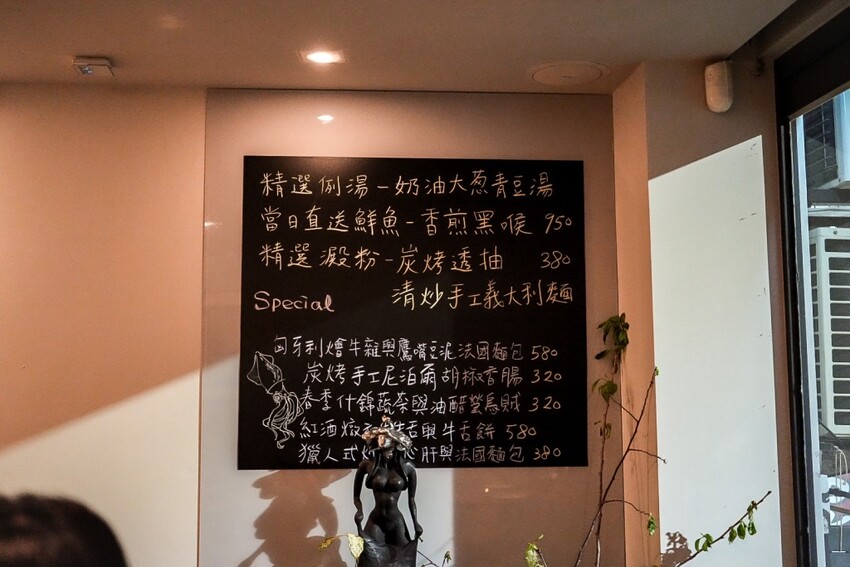 精選例湯-奶油大葱青豆湯
當日直送鮮魚-香煎黑喉 950
精選澱粉-炭烤透抽 380
Special 清炒手工義大利麵
匈牙利燴牛雜與鷹嘴豆泥法國麵包 580
炭烤手工尼泊爾胡椒香腸 320
春季什錦蔬菜與油醋螢烏賊 320
紅酒燉 牛舌與牛舌餅 580
獵人式 心肝與法國麵包 380